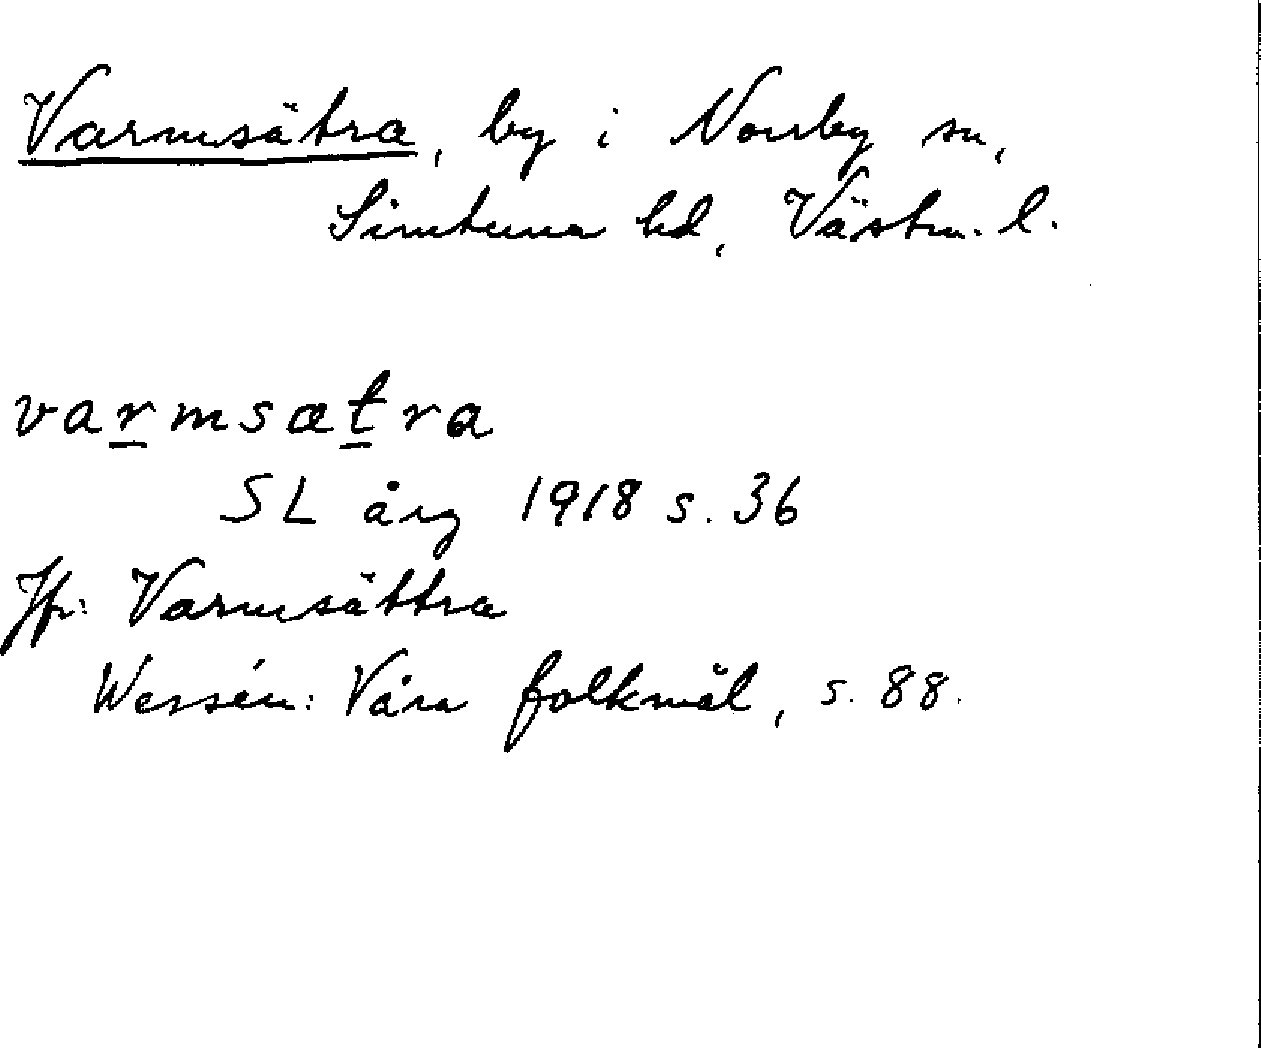 Varmsätra, by i Norrby sn,
Simtuna hd, Västm. l.
varmsætra
SL årg 1918 s. 36
Jfr: Varmsättra
Wessén: Våra folkmål, s. 88.